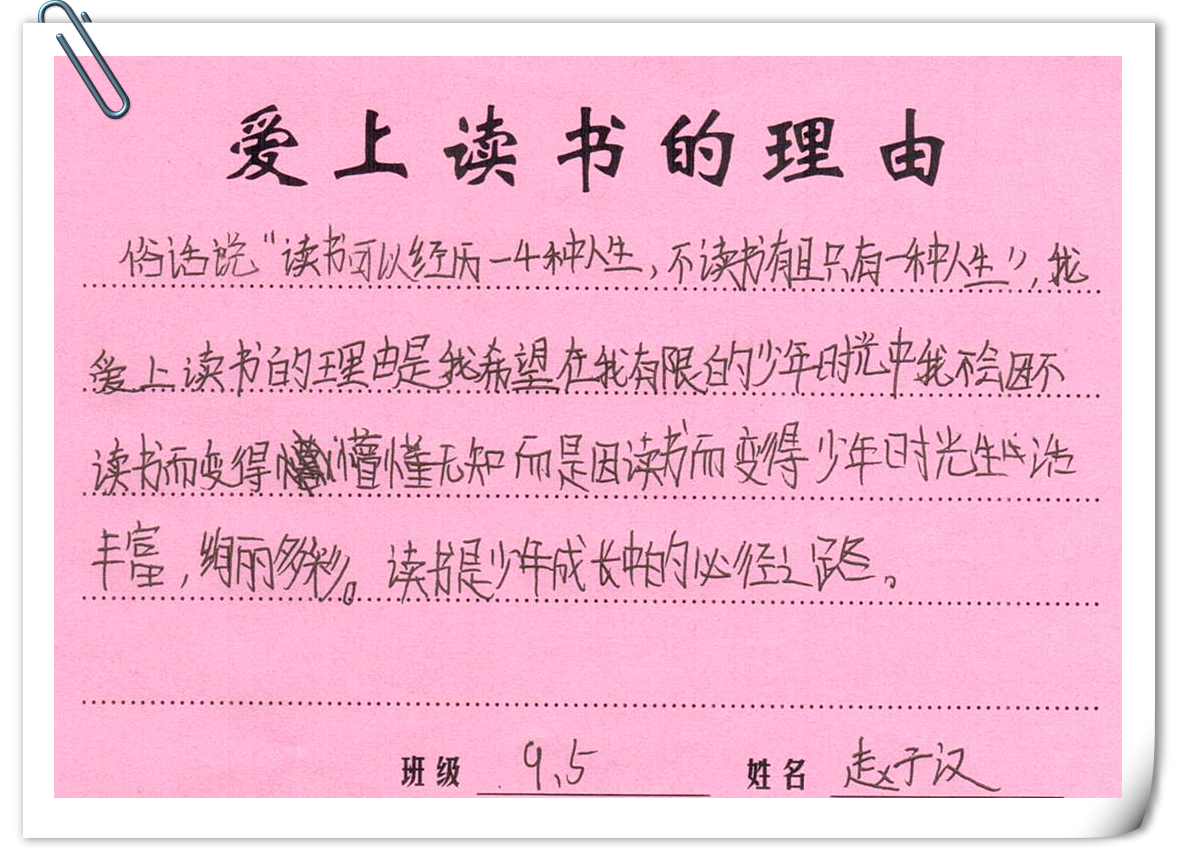 爱上读书的理由
俗话说“读书可以经历一千种人生，不读书有且只有一种人生”，我
爱上读书的理由是我希望在我有限的少年时光中我不会因不
读书而变得懵懂无知而是因读书而变得少年时光生活
丰富，绚丽多彩。读书是少年成长中的必经之路。
班级 9.5 姓名 赵于汉